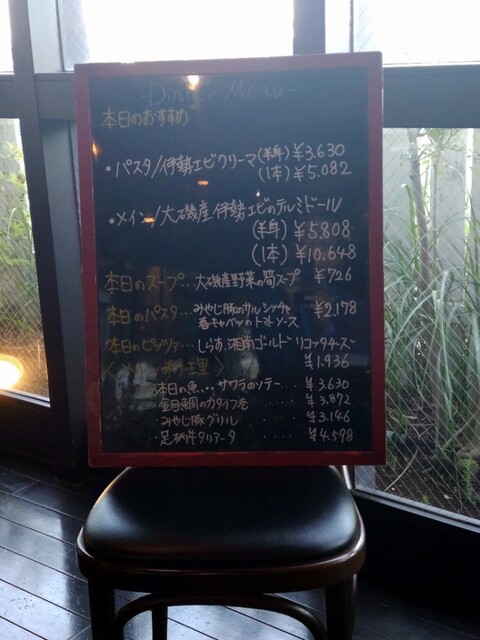 -Dinner Menu-
本日のおすすめ
・パスタ/伊勢エビクリーマ(半身)¥3.630
(1本)¥5.082
・メイン/大磯産伊勢エビのテルミドール
(半身)¥5.808
(1本)¥10.648
本日のスープ‥大磯産野菜の筒スープ ¥726
本日のパスタ…みやじ豚のサルシッチャ ¥2.178
春キャベツのトマトソース
本日のピッツァ…しらす、湘南ゴールド リコッタチーズ
¥1.936
〈メイン料理〉
本日の魚...サワラのソテー... ¥3.630
金目鯛のカダイフ巻 .... ¥3.872
・みやじ豚グリル .... ¥3.146
・足柄牛タリアータ .... ¥4.598